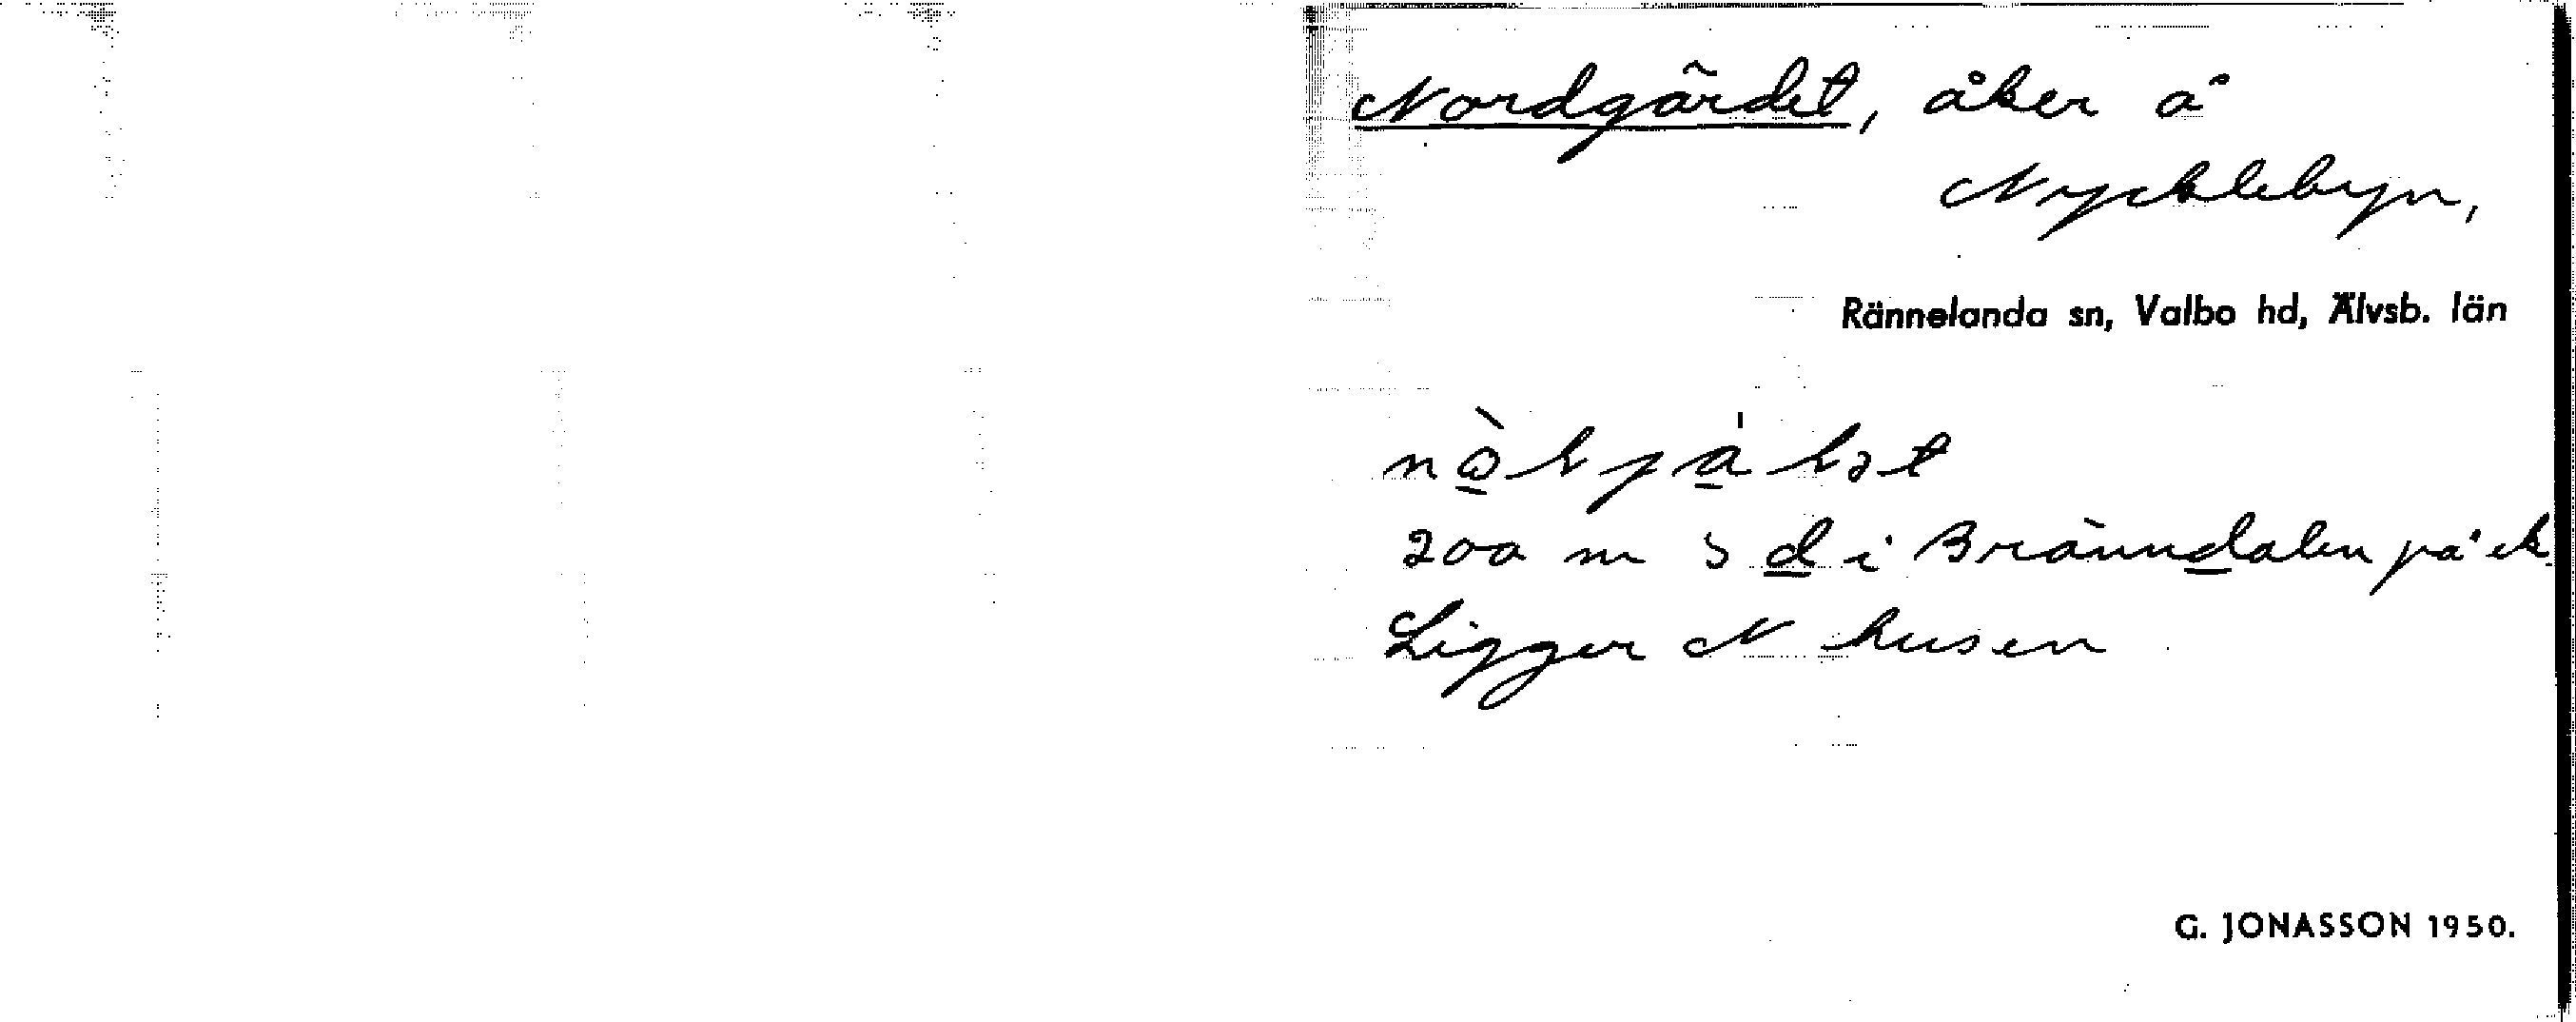 Nordgärdet, åker å
Nycklebyn,
Rännelanda sn, Valbo hd, Älvsb. län
200 m S d i Bränndalen på ek
Ligger N husen
G. JONASSON 1950.